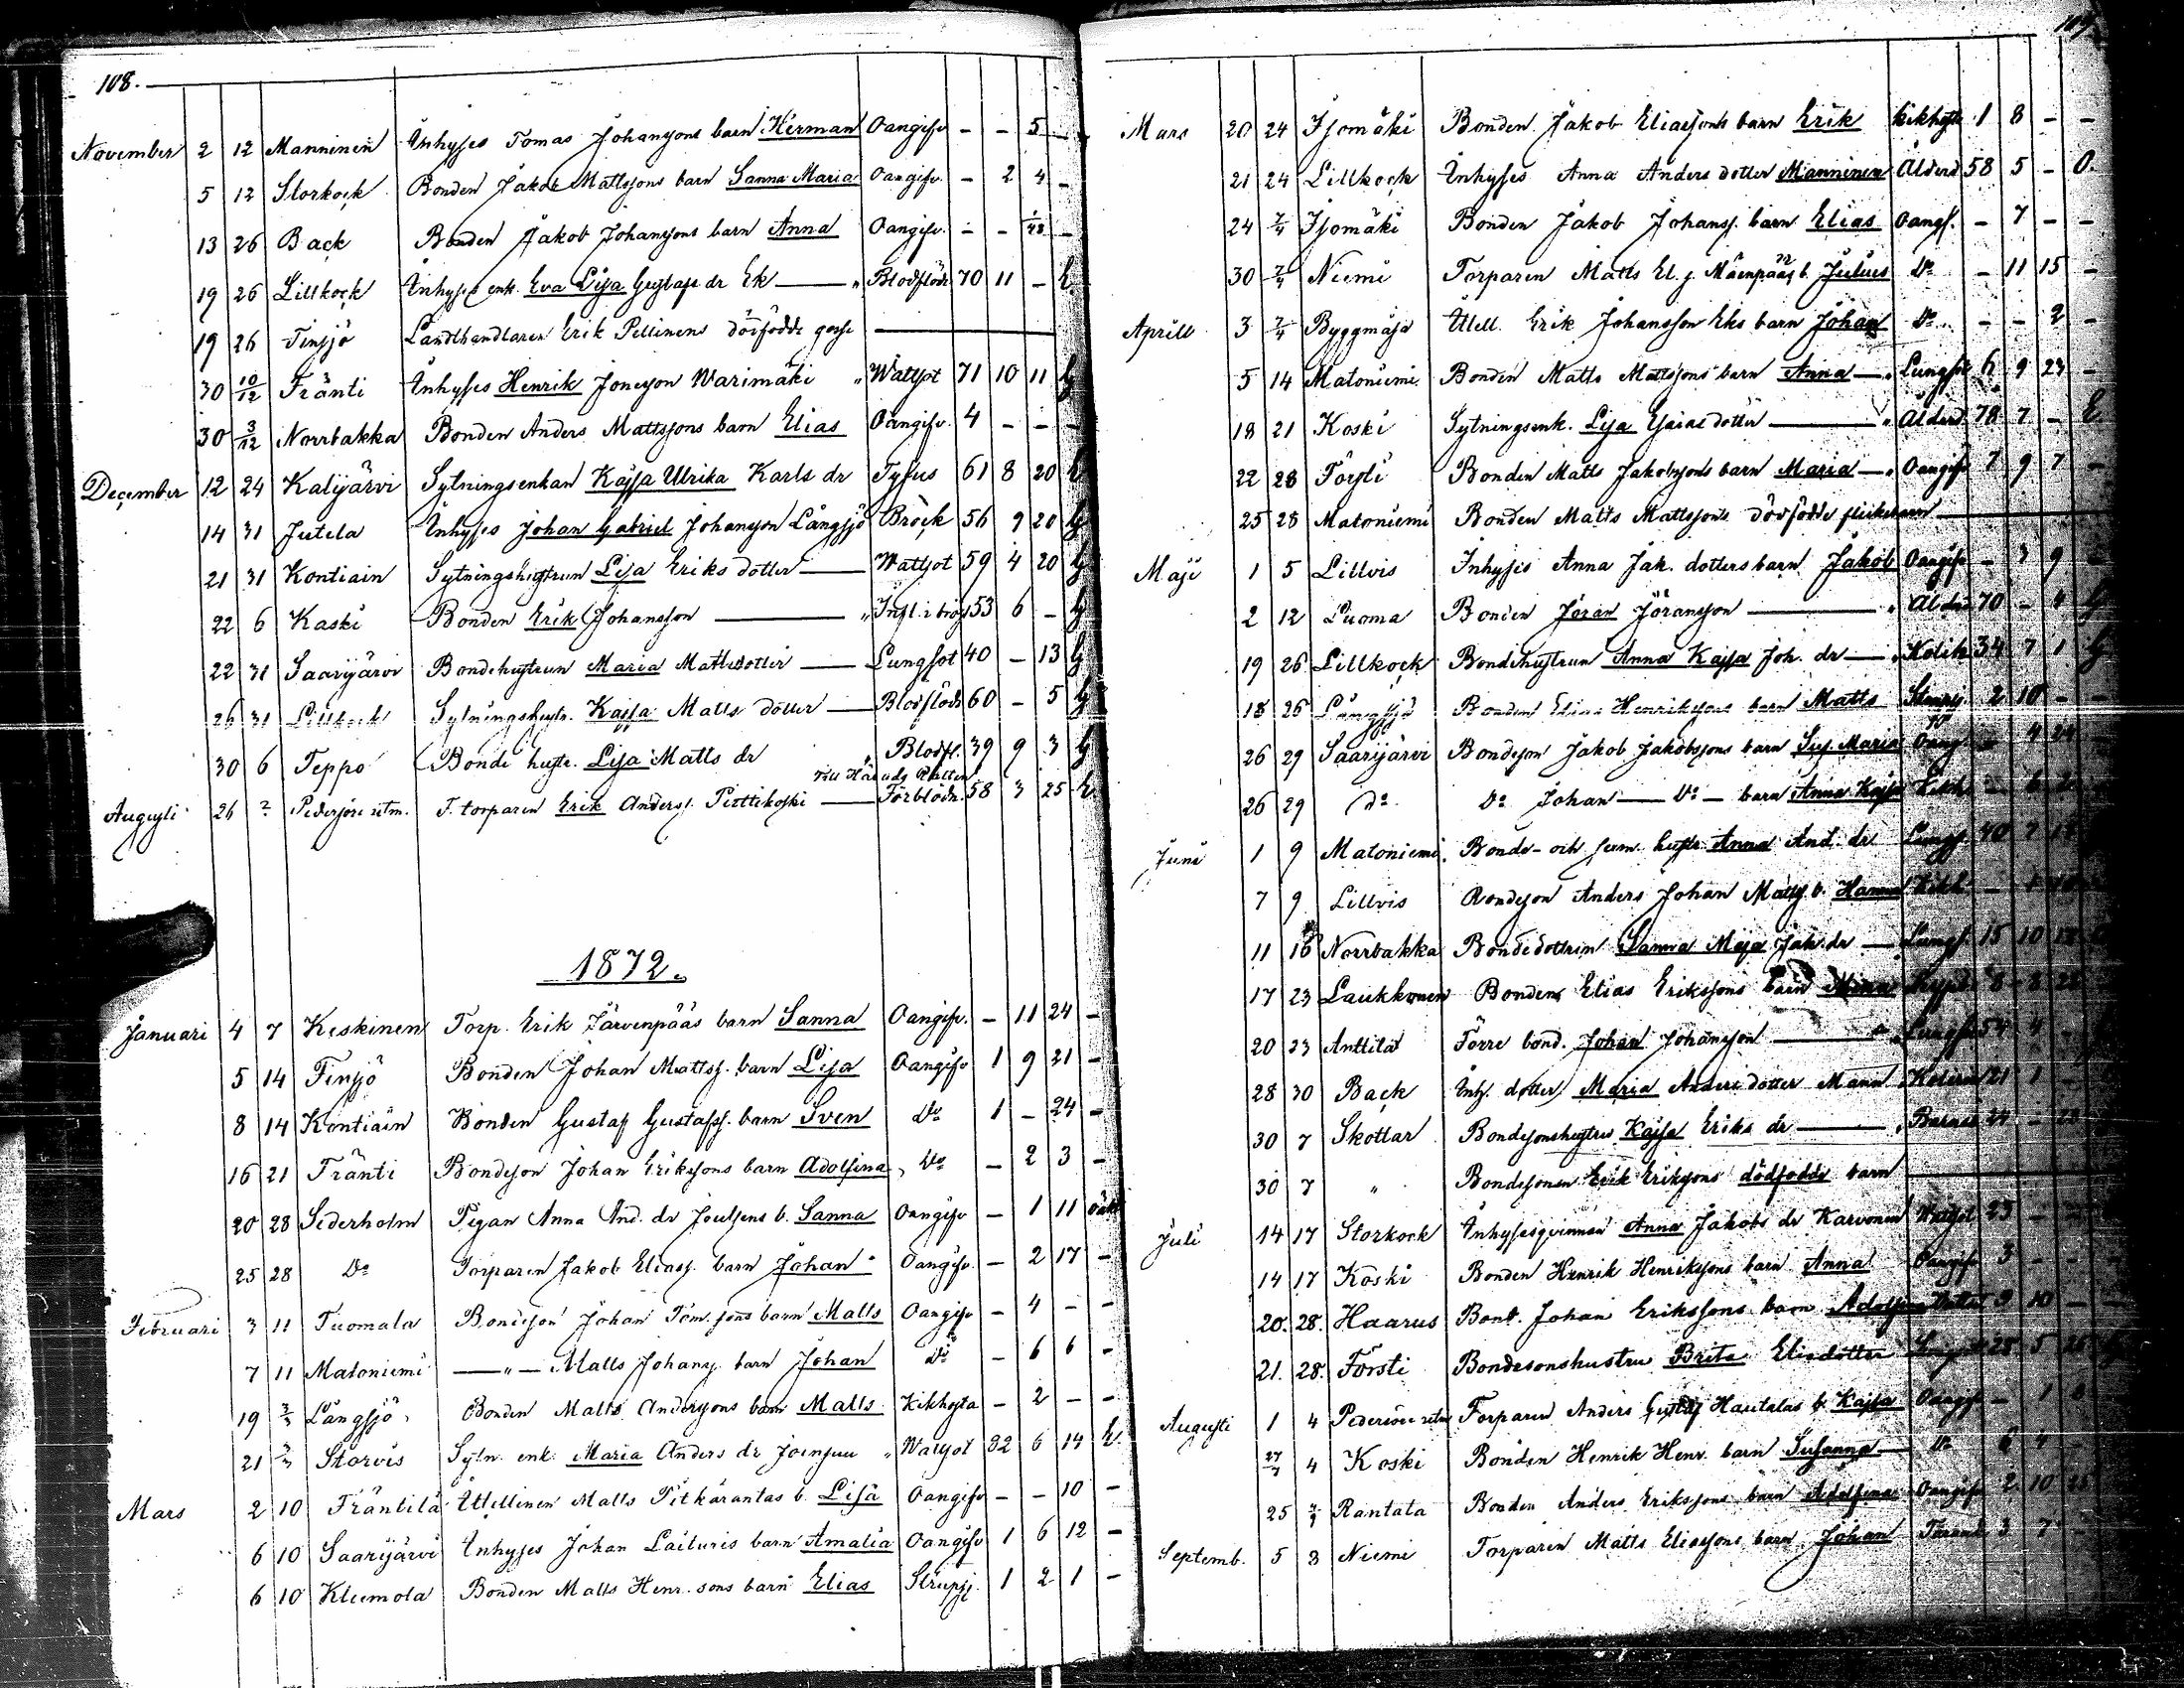 108.
November 2 12 Manninen Inhyses Tomas Johanssons barn Herman Oangifv. - - 5 -
5 12 Storkock Bonden Jakob Mattssons barn Sanna Maria Oangifv. - 2 4 -
13 26 Back Bonden Jakob Johanssons barn Anna Oangifv. - - 1/48 -
19 26 Lillkock Inhyses enk. Eva Lisa Gustafs dr Ek — " Blodflöde 70 11 - E.
19 26 Finsjö Landthandlaren Erik Pellinens dödfödde gosse —
30 10/12 Tränti Inhyses Henrik Jonesson Warimäki " Wattsot 71 10 11 G
30 3/12 Norrbakka Bonden Anders Mattssons barn Elias Oangifv. 4 - - -
December 12 24 Kalijärvi Sytningsenkan Kajsa Ulrika Karls dr Tyfus 61 8 20 E
14 31 Jutela Inhyses Johan Gabriel Johansson Långsjö Bröck 56 9 20 G
21 31 Kontiain Sytningshustrun Lisa Eriks dotter — Wattsot 59 4 20 G
22 6 Kaski Bonden Erik Johansson — " Infl. i brös 53 6 - G
22 31 Saarijärvi Bondehustrun Maria Mattsdotter — Lungsot 40 - 13 G
26 31 Lillkock Sytningshustr. Kajsa Matts dotter — Blodflöde 60 - 5 G
30 6 Teppo Bonde hustr. Lisa Matts dr " Blodfl. 39 9 3 G
Augusti 26 ? Pedersöre utm. F. torparen Erik Anderss. Piettikoski — Förblödn. 58 3 25 E.
1872.
Januari 4 7 Keskinen Torp. Erik Järvenpääs barn Sanna Oangifv. - 11 24 -
5 14 Finsjö Bonden Johan Mattss. barn Lisa Oangifv 1 9 21 -
8 14 Kontiain Bonden Gustaf Gustafss. barn Sven Do 1 - 24 -
16 21 Tränti Bondeson Johan Erikssons barn Adolfina, Do - 2 3 -
20 28 Sederholm Pigan Anna And. dr Joensuus b. Sanna Oangifv - 1 11 oäkt
25 28 Do Torparen Jakob Eliass. barn Johan Oangifv. - 2 17 -
Februari 3 11 Tuomala Bondeson Johan Tom.sons barn Matts Oangifv - 4 - -
7 11 Matoniemi —"— Matts Johanss. barn Johan Do - 6 6 -
19 3/3 Långsjö Bonden Matts Anderssons barn Matts Kikhosta - 2 - -
21 3/3 Storvis Sytn. enk. Maria Anders dr Joensuu " Wattsot 82 6 14 E.
Mars 2 10 Träntilä Utellinen Matts Pitkärantas b. Lisa Oangifv - - 10 -
6 10 Saarijärvi Inhyses Johan Laituris barn Amalia Oangifv 1 6 12 -
6 10 Kleemola Bonden Matts Henr.sons barn Elias Strupsj. 1 2 1 -
109.
Mars 20 24 Isomäki Bonden Jakob Eliassons barn Erik Kikhosta 1 8 - -
21 24 Lillkock Inhyses Anna Anders dotter Manninen Ålderd 58 5 - O.
24 7/4 Isomäki Bonden Jakob Johanss. barn Elias Oangf. - 7 - -
30 7/4 Niemi Torparen Matts El. s. Mäenpääs b. Julius Do - 11 15 -
Aprill 3 7/4 Byggmäs Utell. Erik Johansson Eks barn Johan Do - - 2 -
5 14 Matoniemi Bonden Matts Mattssons barn Anna — " Lungsot 6 9 23 -
18 21 Koski Sytningsenk. Lisa Esaias dotter — " Ålderd. 78 7 - E.
22 28 Försti Bonden Matts Jakobssons barn Maria — " Oangifv 7 9 7 -
25 28 Matoniemi Bonden Matts Mattssons dödfödde flickebarn —
Maji 1 5 Lillvis Inhyses Anna Jak. dotters barn Jakob Oangifv - 3 9 -
2 12 Luoma Bonden Jöran Jöransson — " Ålderd 70 - 4 G
19 26 Lillkock Bondehustrun Anna Kajsa Joh. dr — " Kolik 34 7 1 G
18 26 Långsjö Bonden Elias Henrikssons barn Matts Strupsj. 2 10 - -
26 29 Saarijärvi Bondeson Jakob Jakobssons barn Sus. Maria Oang. 4 24
26 29 Do Do Johan — Do — barn Anna Kajsa Kikh.
Juni 1 9 Matoniemi Bonde- och hustr. Anna And. dr Lungs. 40 7
7 9 Lillvis Bondeson Anders Johan Matts. b. Hanna Kikh.
11 16 Norrbakka Bondedottren Sanna Maja Jak. dr — Lungs. 15 10
17 23 Laukkonen Bonden Elias Erikssons barn 8 8
20 23 Anttila Förre bond. Johan Johansson — " Lungs. 54 4
28 30 Back Inh. dotter Maria Anders dotter Mann. 21 1
30 7 Skottar Bondesonshustru Kajsa Eriks dr — 24 -
30 7 " Bondesonen Erik Erikssons dödfödde barn —
Juli 14 17 Storkock Inhysesqvinnan Anna Jakobs dr Karvonen Wattsot 23
14 17 Koski Bonden Henrik Henrikssons barn Anna Oangifv 3 -
20. 28. Haarus Bond. Johan Erikssons barn Adolfina 3 10
21. 28. Försti Bondesonshustru Brita Eliedotter 28 5
Augusti 1 4 Pedersöre utm Torparen Anders Gustafs Hautalas b. Kajsa Oangifv - 1
27/7 4 Koski Bonden Henrik Henr. barn Susanna Do 6 4
25 Rantala Bonden Anders Erikssons barn Adolfina Oangifv 2 10 25
Septemb. 5 8 Niemi Torparen Matts Eliassons barn Johan 3 7